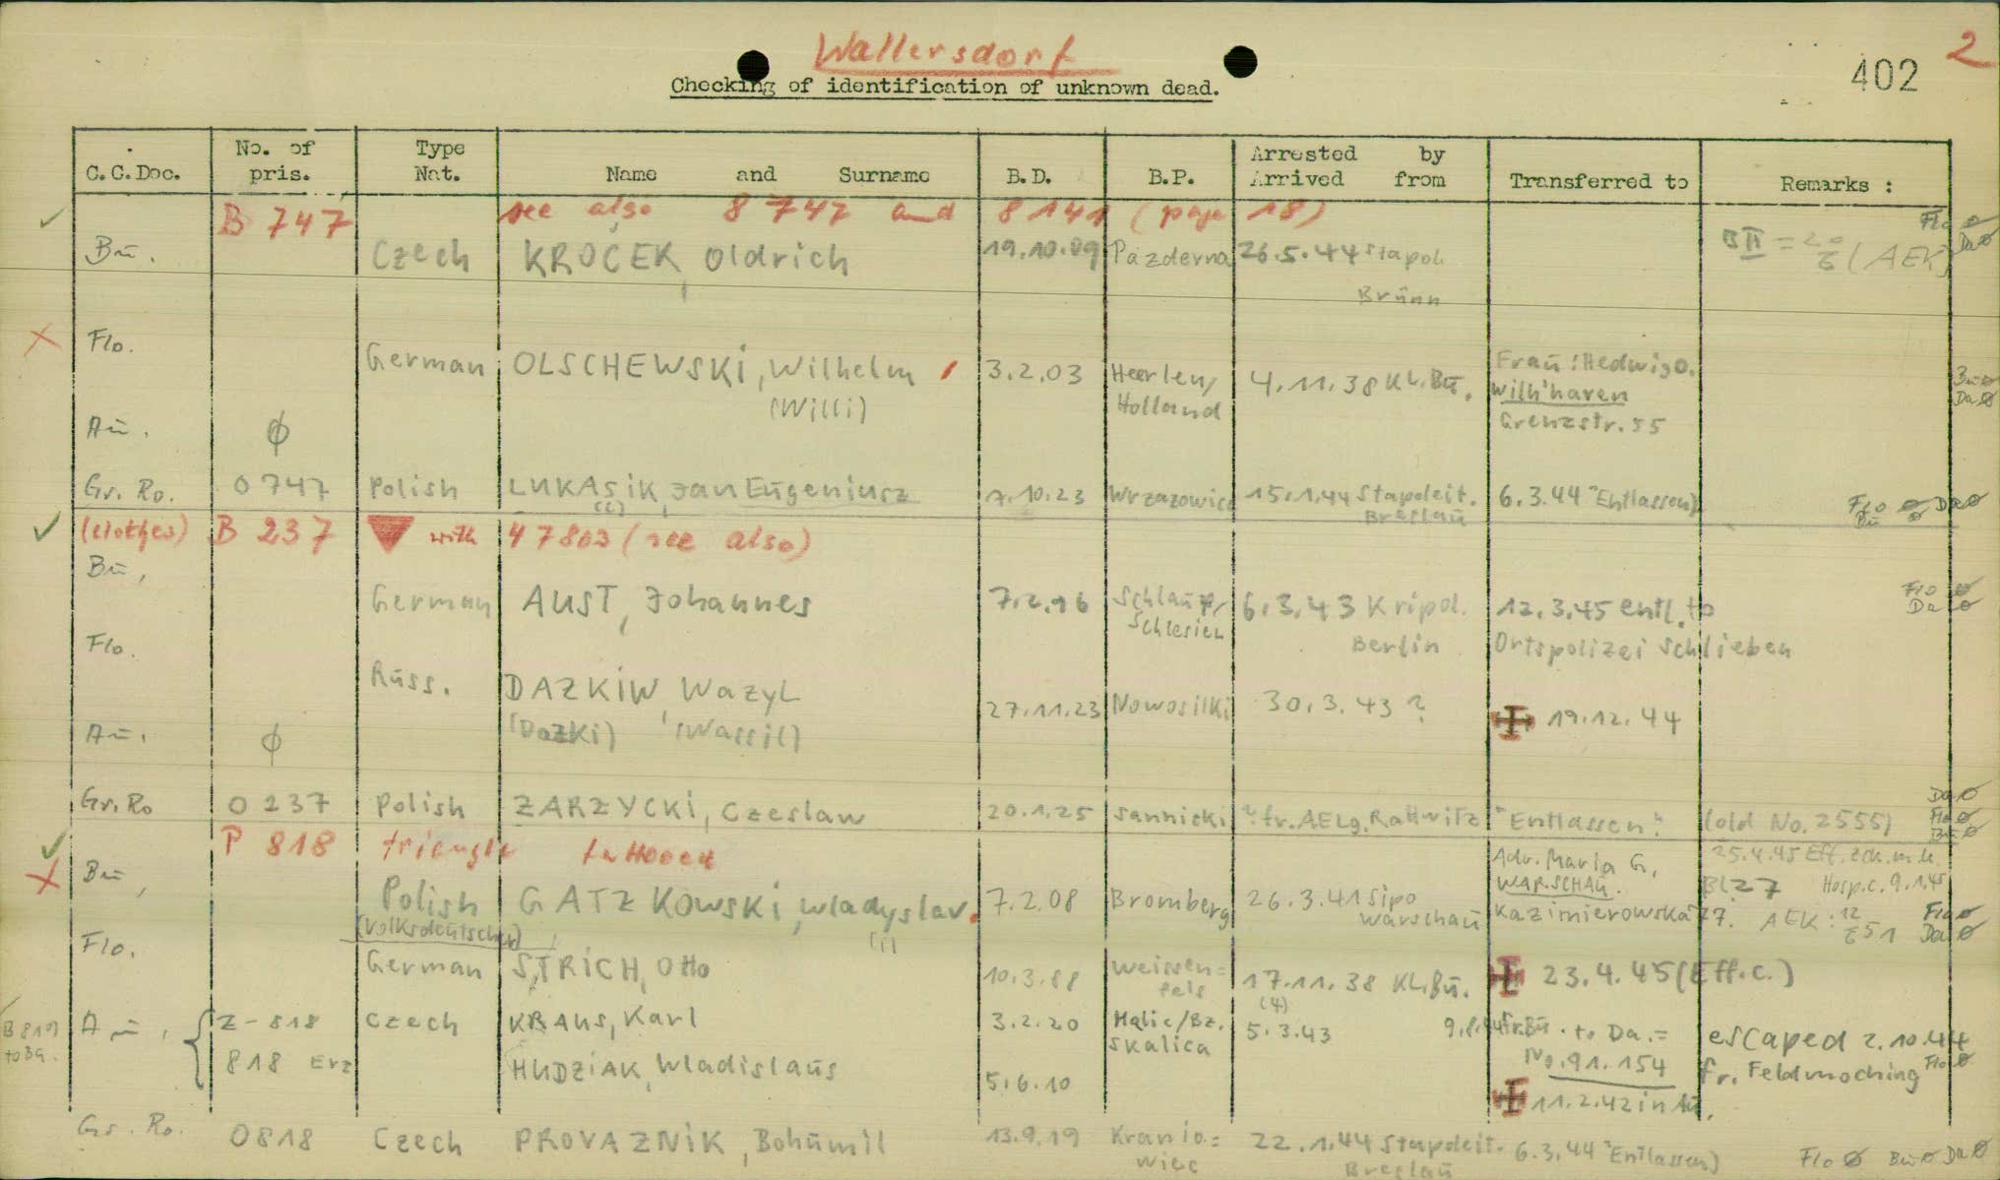 Wallersdorf
2
402
Checking of identification of unknown dead.
C.C.Doc. No. of pris. Type Nat. Name and Surname B.D. B.P. Arrested by Arrived from Transferred to Remarks :
B 747 see also 8747 and 8141 (page 18) Flo ø
Bū. Czech KROCEK, Oldrich 19.10.09 Pazderna 26.5.44 Stapol. BII = 20/6 (AEK) Da ø
Brünn
Flo. German OLSCHEWSKI, Wilhelm 3.2.03 Heerlen/ 4.11.38 KL.Bū. Frau: Hedwig O. Bū ø
(Willi) Holland Wilh'haven Da ø
Grenzstr. 55
Aū. ø
Gr. Ro. 0747 Polish LUKASIK, Jan Eugeniusz 7.10.23 15.1.44 Stapoleit. 6.3.44 "Entlassen) Flo ø Da ø
Breslau Bū ø
(clothes) B 237 with 47803 (see also)
Bū, German AUST, Johannes Schlaup/ 6.3.43 Kripol. 12.3.45 entl. to Flo ø
Schlesien Berlin Ortspolizei Schlieben Da ø
Flo. Russ. DAZKIW, Wazyl 27.11.23 Nowosilki 30.3.43 ? 19.12.44
(Dazki) (Wassil)
Aū. ø
Gr. Ro 0237 Polish ZARZYCKI, Czeslaw 20.1.25 Sannicki ? fr. AELg. Rattwitz "Entlassen". (old No. 2555) Da ø
Flo ø
Bū ø
P 818 triangle tattooed
Bū, Polish GATZKOWSKI, Wladyslav. 7.2.08 Bromberg 26.3.41 Sipo Adr. Maria G. 25.4.45 Eff.
(Volksdeutscher) (i) Warschau WARSCHAU. Bl. 27 Hosp.c. 9.1.45
Kazimierowska 27. AEK: Flo ø
Da ø
Flo. German STRICH, Otto 10.3.88 Weissen= 17.11.38 KL.Bū. 23.4.45 (Eff.c.)
fels (4)
B 819) to Ba. Aū, Z-818 Czech KRAUS, Karl 3.2.20 Malic/Bz. 5.3.43 9.8.44 fr. Bū. to Da.= escaped 2.10.44
Skalica No. 91.154 fr. Feldmoching Flo ø
818 Erz HUDZIAK, Wladislaus 5.6.10 11.2.42 in Aū.
Gr. Ro. 0818 Czech PROVAZNIK, Bohumil 13.9.19 Kranio= 22.1.44 Stapoleit. 6.3.44 "Entlassen) Flo ø Bū ø Da ø
wiec Breslau